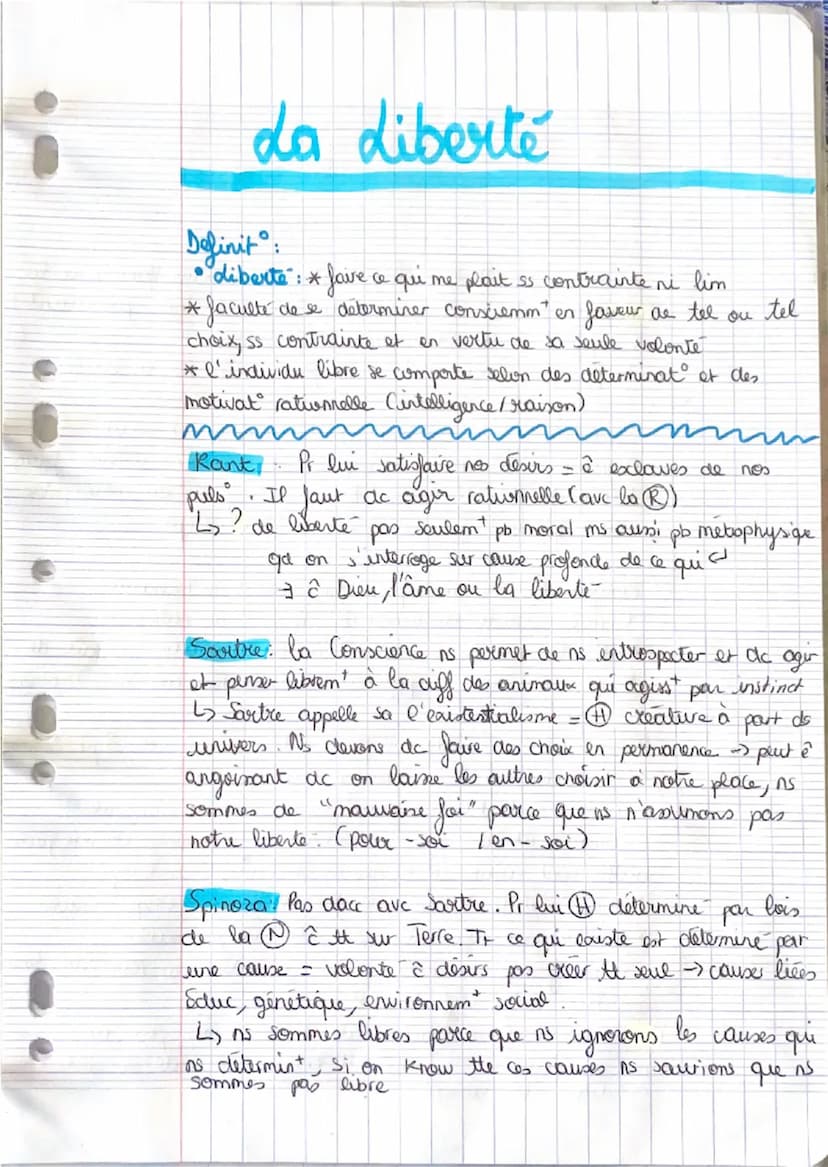 La Liberté
Definit° :
• liberté : * faire ce qui me plait ss contrainte ni lim
* faculté de se déterminer consciemmt en faveur de tel ou tel
choix, ss contrainte et en vertu de sa seule volonté
* l'individu libre se comporte selon des déterminat° et des
motivat° rationnelle (intelligence / raison)
Kant : Pr lui satisfaire nos désirs = ê esclaves de nos
puls°. Il faut dc agir rationnelle (avc la Ⓡ)
↳ ? de liberté pas seulemt pb moral ms aussi pb métaphysiqe
qd on s'interroge sur cause profonde de ce qui ↵
∃ ĉ Dieu, l'âme ou la liberté
Sartre : la Conscience ns permet de ns introspecter et dc agir
et penser libremt à la diff des animaux qui agisst par instinct
↳ Sartre appelle sa l'existentialisme = Ⓗ créature à part ds
univers. Ns devons dc faire des choix en permanence → peut ê
angoissant dc on laisse les autres choisir à notre place, ns
sommes de "mauvaise foi" parce que ns n'assumons pas
notre liberté. (pour-soi / en-soi)
Spinoza : Pas dacc avc Sartre. Pr lui Ⓗ déterminé par lois
de la Ⓝ ĉ tt sur Terre. Tt ce qui existe est déterminé par
une cause = volonté ĉ désirs pas créer tt seul → causes liées
Educ, génétique, environnemt social.
↳ ns sommes libres parce que ns ignorons les causes qui
ns détermint, si on know tte ces causes ns saurions que ns
sommes pas libre